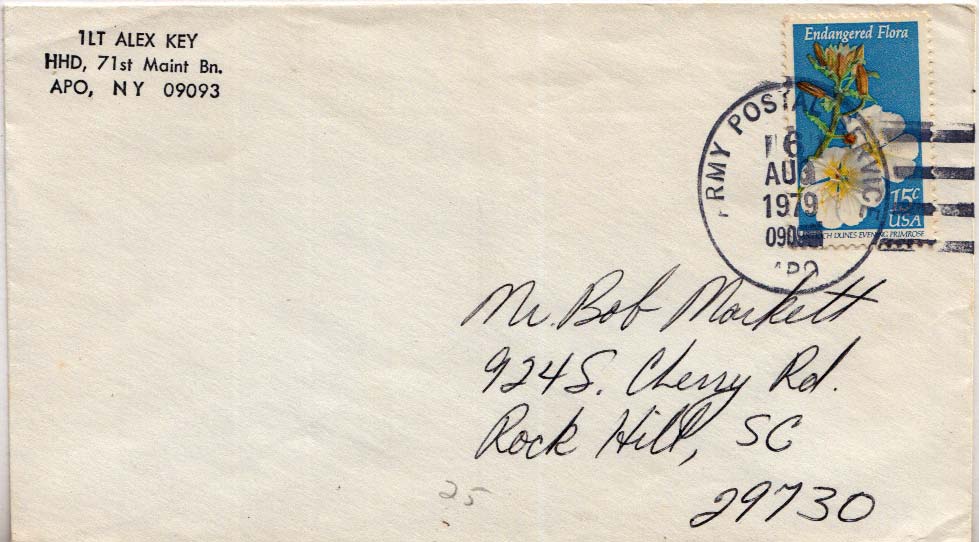 1LT ALEX KEY
HHD, 71st Maint Bn.
APO, NY 09093
Endangered Flora
15c
USA
DUNES EVENING PRIMROSE
RMY POSTAL SERVICE
6
AUG
1979
APO
Mr. Bob Markett
924 S. Cherry Rd.
Rock Hill, SC
29730
25